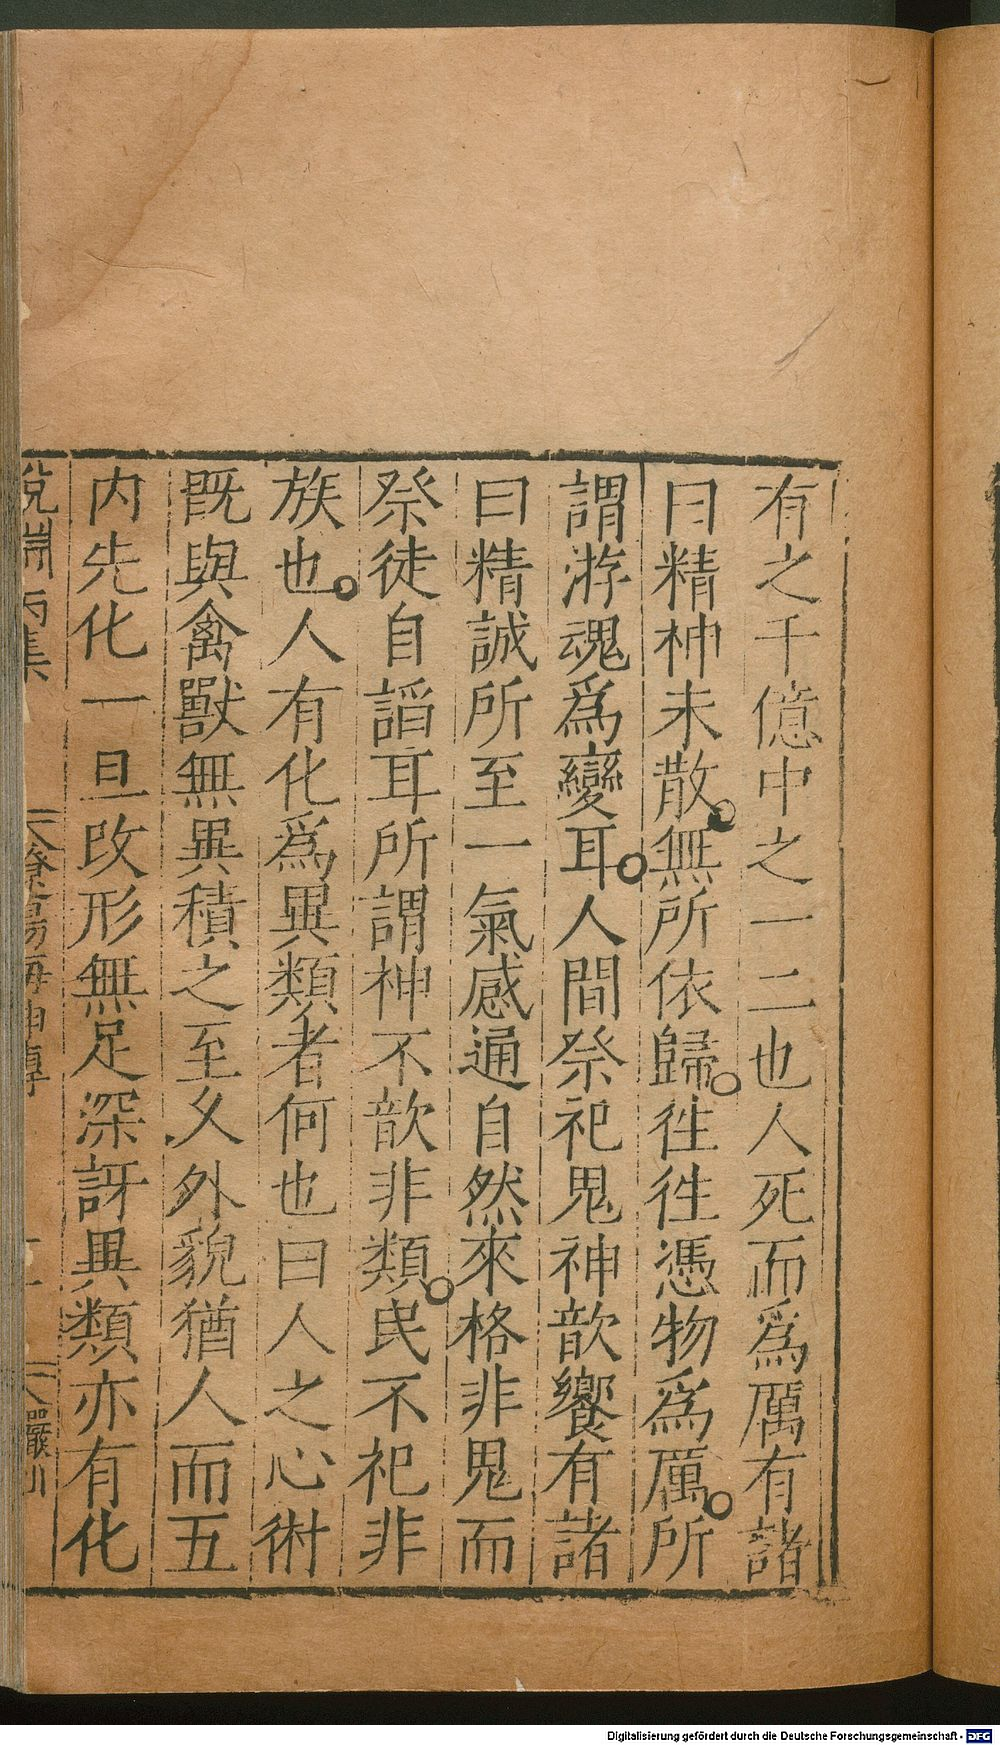 有之千億中之一二也人死而爲厲有諸
曰精神未散無所依歸徃徃憑物爲厲所
謂游魂爲變耳人間祭祀鬼神歆饗有諸
曰精誠所至一氣感通自然來格非鬼而
祭徒自謟耳所謂神不歆非類民不祀非
族也人有化爲異類者何也曰人之心術
既與禽獸無異積之至久外貌猶人而五
内先化一旦改形無足深訝異類亦有化
說淵丙集
Digitalisierung gefördert durch die Deutsche Forschungsgemeinschaft - DFG